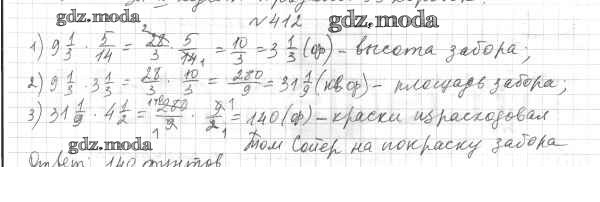 №412
gdz.moda gdz.moda
1) 9 1/3 · 5/14 = 28/3 · 5/14 = 10/3 = 3 1/3 (ф) – высота забора;
2) 9 1/3 · 3 1/3 = 28/3 · 10/3 = 280/9 = 31 1/9 (кв ф) – площадь забора;
3) 31 1/9 · 4 1/2 = 280/9 · 9/2 = 140 (ф) – краски израсходовал
gdz.moda Том Сойер на покраску забора
Ответ: 140 фунтов